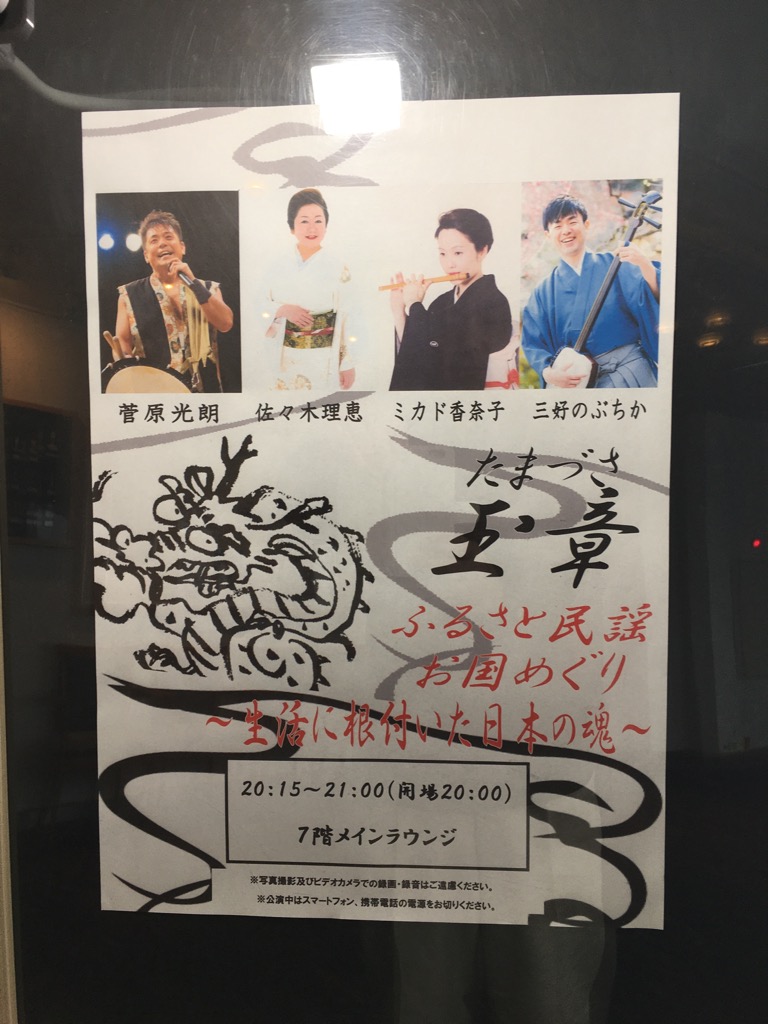 菅原光朗 佐々木理恵 ミカド香奈子 三好のぶちか
たまづさ
玉章
ふるさと民謡
お国めぐり
～生活に根付いた日本の魂～
20:15～21:00(開場20:00)
7階メインラウンジ
※写真撮影及びビデオカメラでの録画・録音はご遠慮ください。
※公演中はスマートフォン、携帯電話の電源をお切りください。